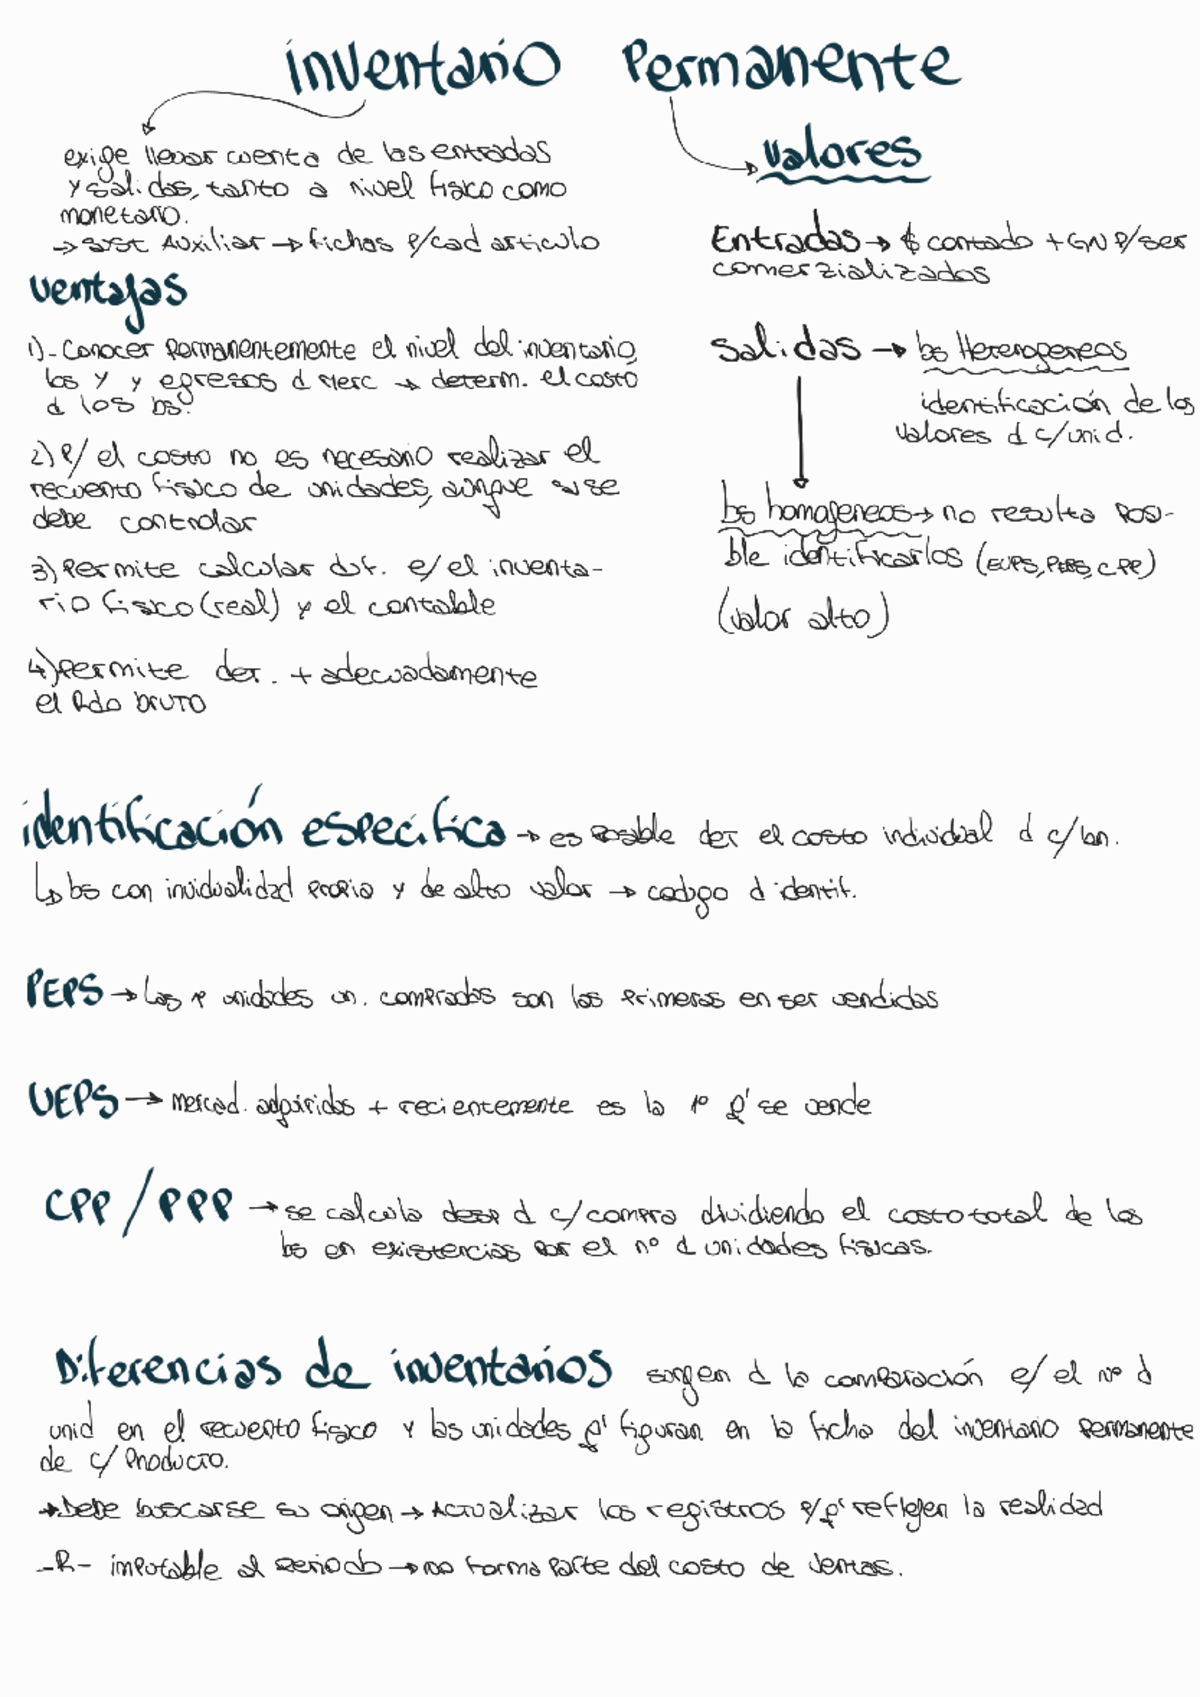 inventario Permanente
exige llevar cuenta de las entradas
y salidas, tanto a nivel físico como
monetario.
→ sist Auxiliar → fichas p/cad articulo
ventajas
1)- Conocer permanentemente el nivel del inventario,
los y egresos d Merc → determ. el costo
d los bs.
2) P/ el costo no es necesario realizar el
recuento físico de unidades, aunque si se
debe controlar
3) Permite calcular dif. e/ el inventa-
rio físico (real) y el contable
4) Permite der. + adecuadamente
el Rdo bruto
valores
Entradas → $ contado + GN P/ser
comerzializados
Salidas → bs Heterogeneos
identificación de los
valores d c/unid.
bs homogeneos → no resulta posi-
ble identificarlos (EUPS, PEPS, CPP)
(valor alto)
identificación especifica → es posible der el costo individual d c/bn.
↳ bs con invidualidad propia y de alto valor → codigo d identif.
PEPS → Las unidades un. compradas son las primeras en ser vendidas
UEPS → mercad. adquiridas + recientemente es la 1º q' se vende
CPP / PPP → se calcula desp d c/compra dividiendo el costo total de los
bs en existencias por el nº d unidades físicas.
Diferencias de inventarios surgen d la comparación e/ el nº d
unid en el recuento físico y las unidades q' figuran en la ficha del inventario permanente
de c/ Producto.
→ Debe buscarse su origen → Actualizar los registros p/q' reflejen la realidad
-R- imputable al periodo → no forma parte del costo de ventas.